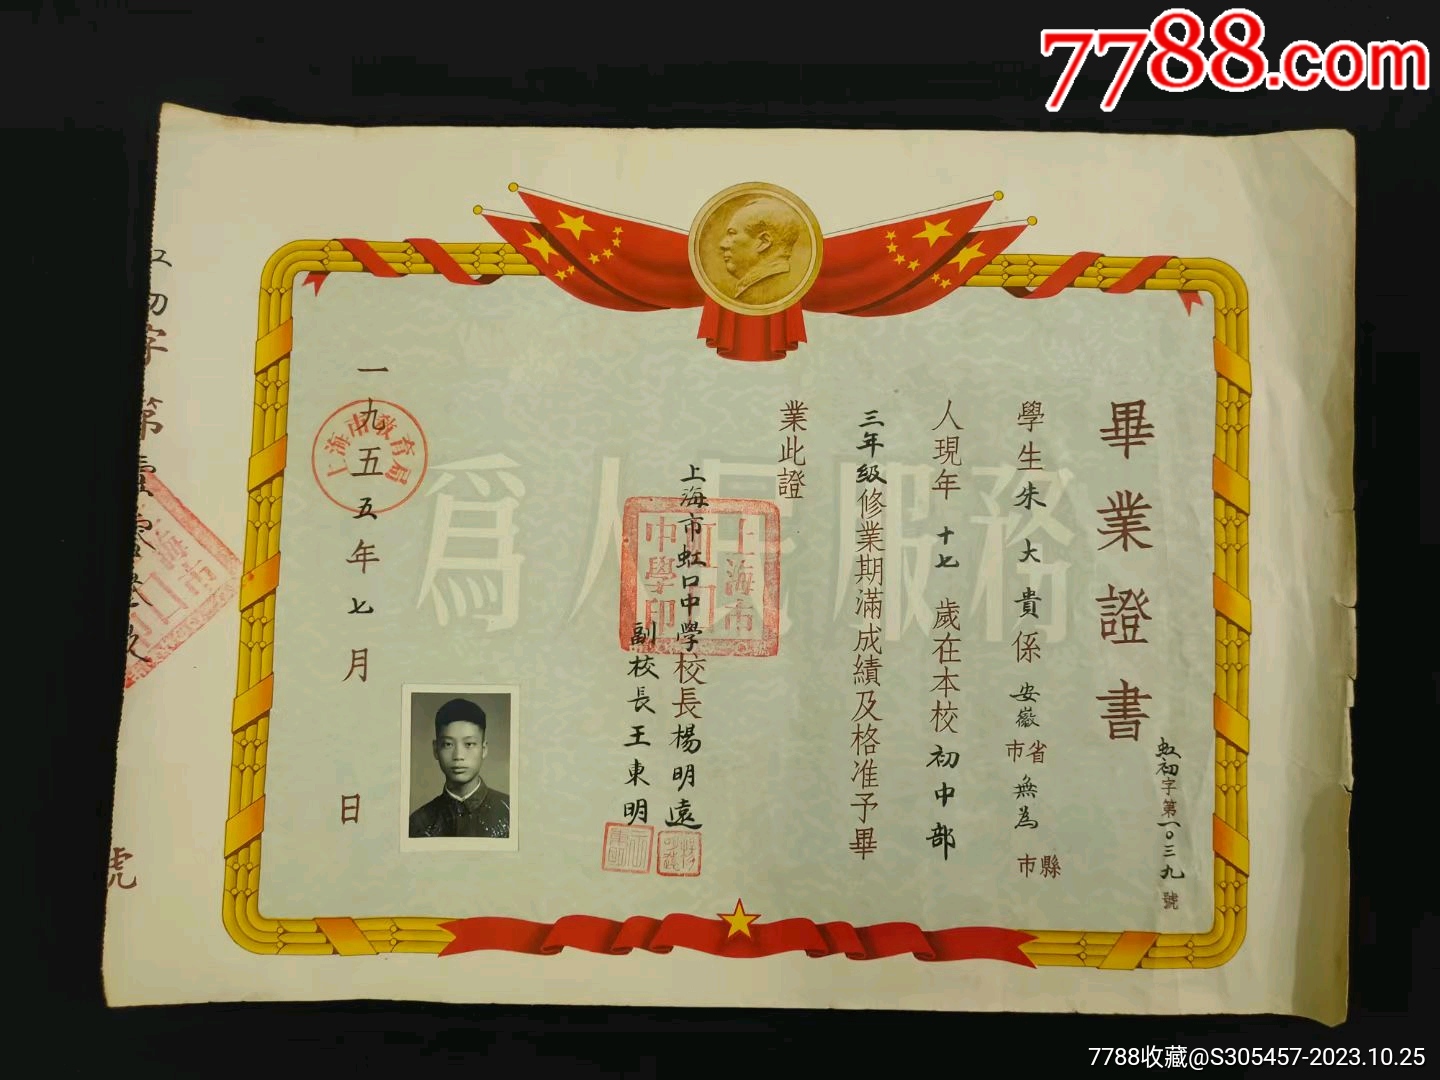 7788.com
畢業證書
虹初字第一〇三九號
學生朱大貴係安徽省市無為縣市
人現年十七歲在本校初中部
三年級修業期滿成績及格准予畢
業此證
為人民服務
上海市虹口中學校長楊明遠
副校長王東明
上海市虹口中學印
一九五五年七月日
上海市教育局
字第
號
7788收藏@S305457-2023.10.25